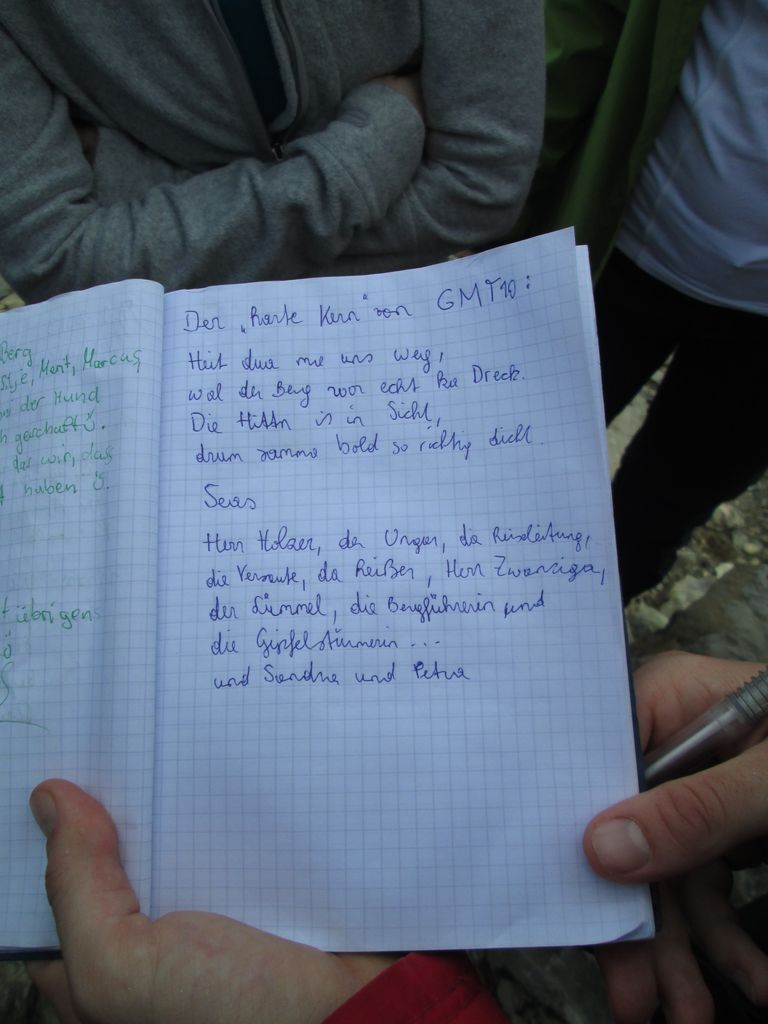 Berg
stje, Merit, Marcus
der Hund
h geschafft
das wir, das
haben
übrigens
Der "harte Kern" von GMT10:
Heit dua me uns weg,
wal der Berg wor echt ka Dreck.
Die Hittn is in Sicht,
drum samma bold so richtig dicht.
Seas
Herr Holzer, da Ungar, die Reiseleitung,
die Versaute, da Reißer, Herr Zwanziga,
der Lümmel, die Bergführerin und
die Gipfelstürmerin ...
und Sandra und Petra